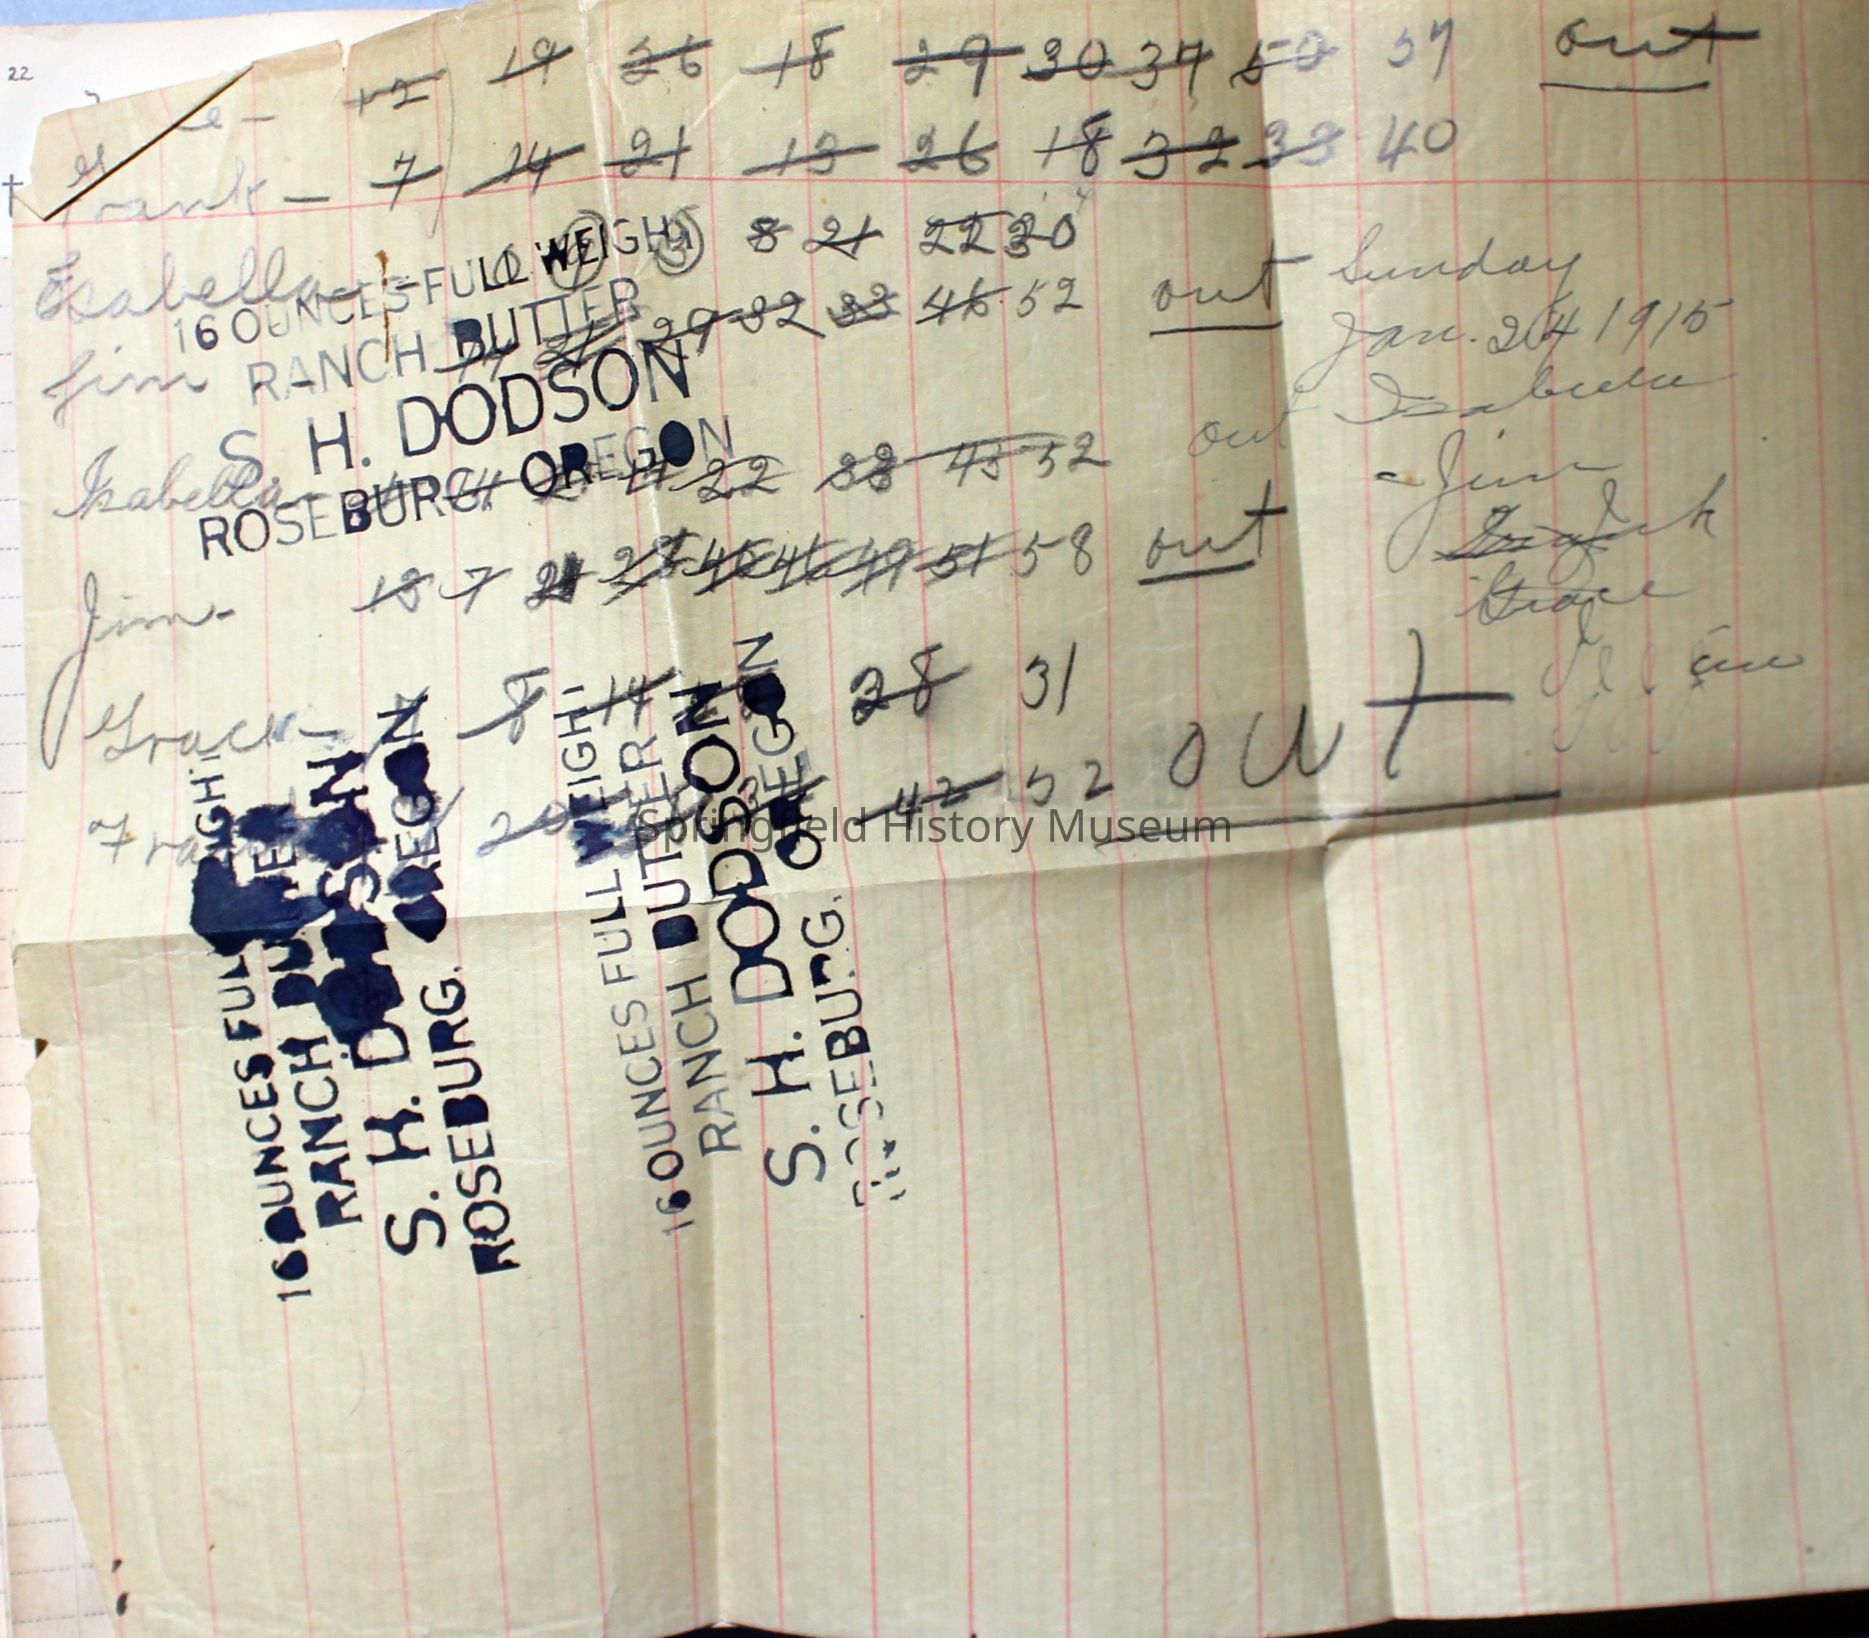 22
12 19 26 18 29 30 37 50 57 out
Frank - 7 14 21 13 26 18 32 33 40
Isabella 8 21 22 30
Jim 14 21 29 32 33 46 52 out
Sunday
Jan. 24 1915
Isabella
- Jim
Frank
Grace
16 OUNCES FULL WEIGHT
RANCH BUTTER
S. H. DODSON
ROSEBURG OREGON
Isabella - 14 22 33 43 52 out
Jim - 13 7 21 28 45 46 49 51 58 out
Grace - 8 14 28 31
Frank 20 42 52 out
16 OUNCES FULL WEIGHT
RANCH BUTTER
S. H. DODSON
ROSEBURG. OREGON
16 OUNCES FULL WEIGHT
RANCH BUTTER
S. H. DODSON
ROSEBURG. OREGON
Springfield History Museum